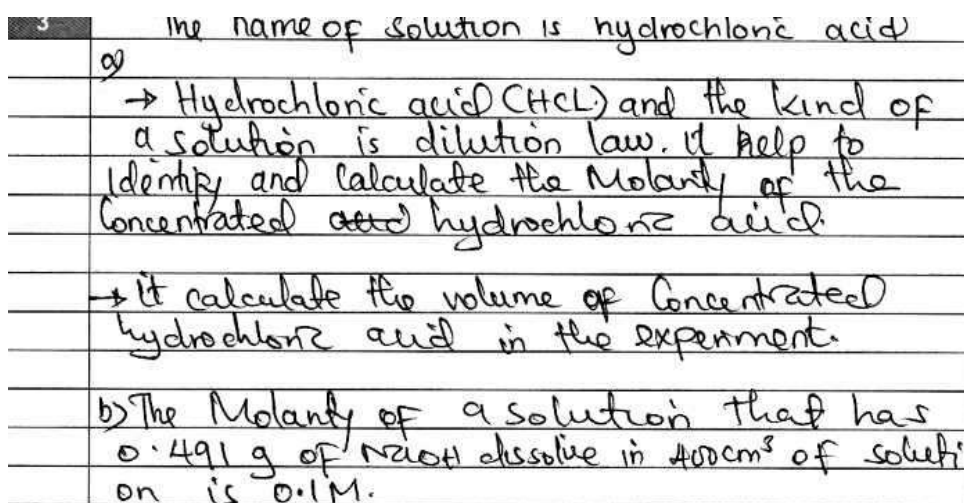 3 The name of solution is hydrochloric acid
a)
→ Hydrochloric acid (HCL) and the kind of
a solution is dilution law. it help to
Identify and Calculate the Molarity of the
Concentrated hydrochloric acid.
→ it calculate the volume of Concentrated
hydrochloric acid in the experiment.
b) The Molarity of a solution that has
0.491 g of NaOH dissolve in 400cm³ of soluti
on is 0.1M.